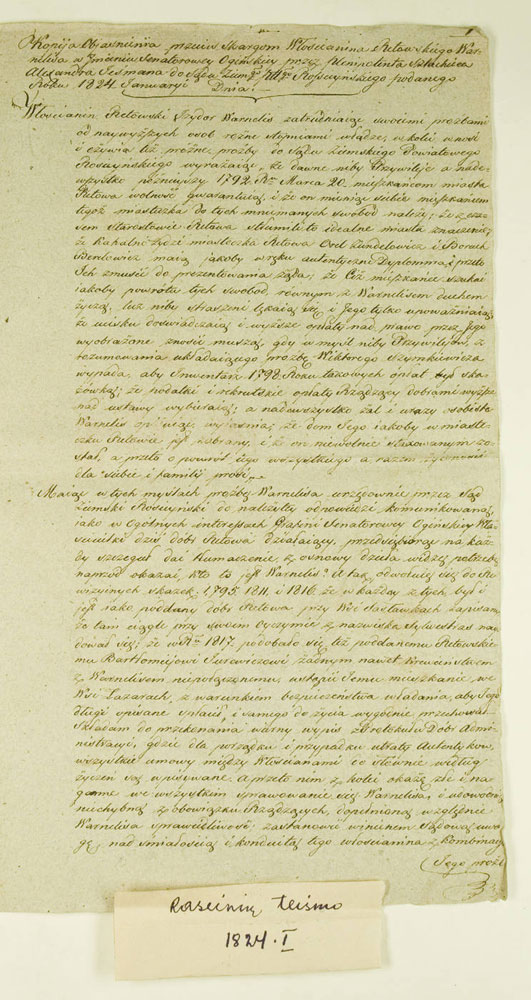 Kopija Obiaśnienia przeciw Skargom Włościanina Retowskiego War-
nelisa w Imieniu Senatorowey Ogińskiey przez Plenipotenta Szlachcica
Alexandra Sesmana do Sądu Ziem: Pttu Rossieńskiego podanego
Roku 1824 Januaryi Dnia
Włościanin Retowski Izydor Warnelis zatrudniaiąc swoiemi prozbami
od naywyższych osob rożne stopniami władze, w kolei wnosi
i ożywia też prożne prozby do Sądu Ziemskiego Powiatowego
Rossieńskiego wyrażaiąc, że dawne niby Przywileje a nade-
wszystko poźnieyszy 1792 Rku Marca 20. mieszkancom miasta
Retowa wolność gwarantuią, i że on mieniąc siebie mieszkańcem
tegoż miasteczka do tych mniemanych swobod należy; że z cza-
sem Starostowie Retowa stłumili to idealne miasta znaczenie;
że Kahalni Żydzi miasteczka Retowa Orel Kundelowicz i Boruch
Bendowicz maią jakoby w ręku autentyczne Dyplomma, przeto
Ich zmusić do prezentowania żąda; że Ciż mieszkańce szukai
iakoby powrotu tych swobod, rownym z Warnelisem duchem
życzą, lecz niby straszeni lękaią się i Jego tylko upoważniaią;
że ucisku doświadczaią i wyższe opłaty nad prawo przez Jego
wyobrażane znosić muszą, gdy w myśl niby Przywileiow, z
rozumowania układaiącego prozbę Wiktorego Szymkiewicza
wypada, aby Inwentarz 1798 Roku taxowych opłat był ska-
zowką; że podatki i rekrutskie opłaty Rządzący dobrami wyższe
nad ustawy wybieraią; a nadewszystko żal i urazy osobiste
Warnelis wyiaśnia, że dom Jego iakoby w miaste-
czku Retowie jest zabrany, i że on niewolnie zo-
stał, a przeto o powrot tego wszystkiego a razem
dla siebie i familij prosi.
Maiąc w tych myślach prozbę Warnelisa urzędownie przez Sąd
Ziemski Rossieński do należytey odpowiedzi kommunikowaną,
jako w Ogólnych interessach Grafini Senatorowey Ogińskiey Wła-
scicielki dziś dobr Retowa działaiący, przedsiębiorąc na każ-
dy szczeguł dać tłumaczenie, z osnowy dzieła widzę potrzebę
naprzod okazać, kto to jest Warnelis? A tak, odwołuię się do Re-
wizyinych skazek 1795. 1811. i 1816. że w każdey z tych, był i
jest iako poddany dobr Retowa przy Wsi zapisany
że tam ciągle przy swoim Oyczymie z nazwiska Sylwestras znay-
dował się; że w Rku 1817. podobało się też poddanemu Retowskie-
mu Bartłomiejowi Jurewiczowi żadnym nawet Krewieństwem
z Warnelisem niepołączonemu, ustąpić Jemu mieszkanie, we
Wsi Łazarach, z warunkiem bezpieczeństwa władania, aby Jego
długi opisane spłacił, i samego do życia wygodnie przechował.
Składam do przekonania warny wypis z Protokułu Dobr Admi-
nistracyi, gdzie dla porządku i przypadku utraty Autentykow,
wszystkie umowy między Włościanami co słownie według
życzeń są wpisywane. A przeto nim z kolei okażę złe i na-
ganne we wszystkim sprawowanie się Warnelisa, i udowodnię
niechybną z obowiązku Rządzących, dopełnioną względnie
Warnelisa sprawiedliwość, zastanowić winienem Sądową uwa-
gę, nad śmiałością i konduitą tego włościanina z kombinacyi
Jego prozb
Raseinių teismo
1824·I